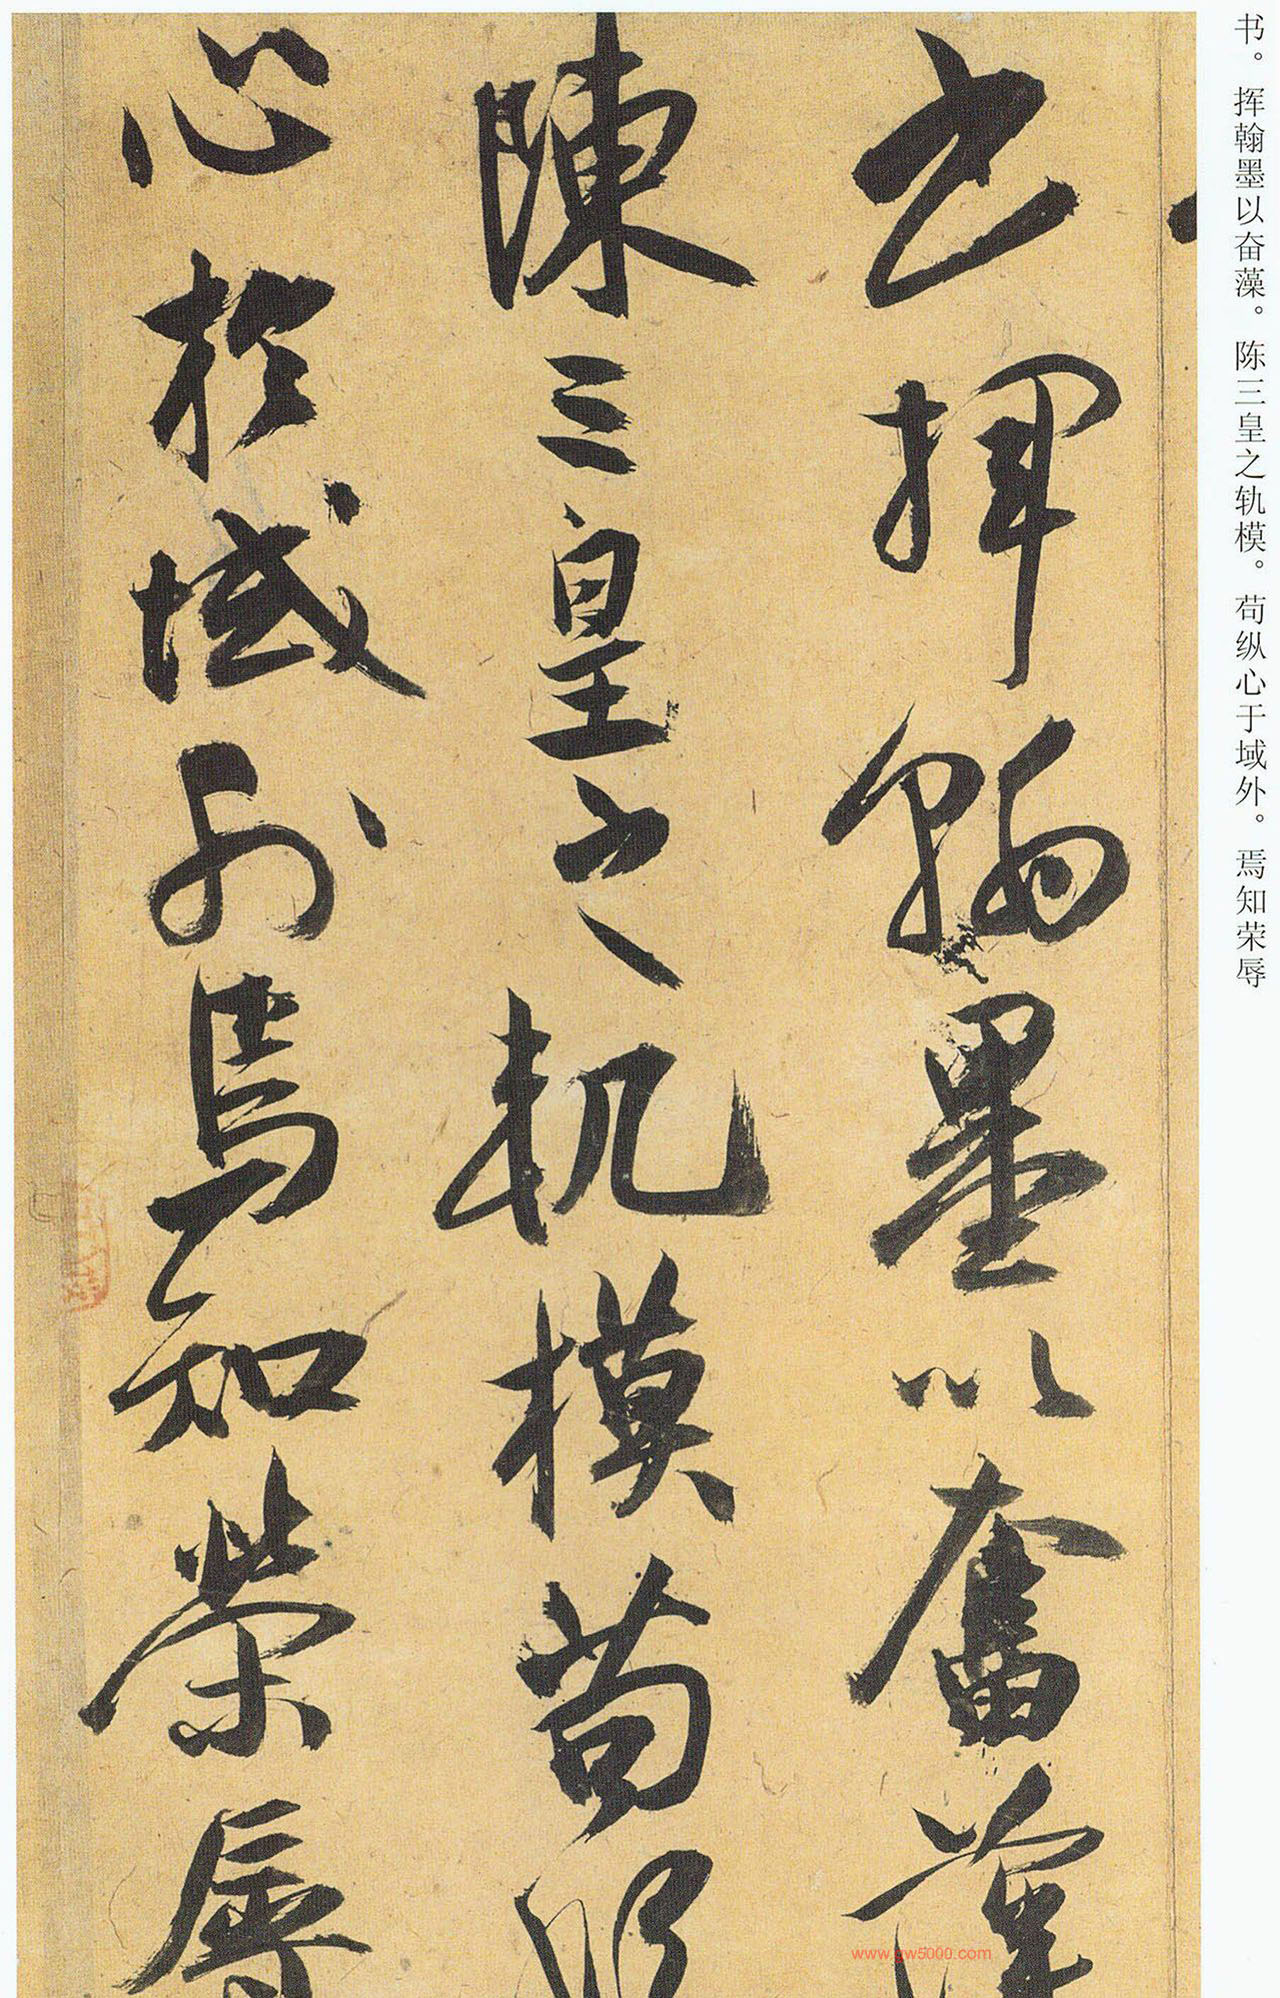 书。挥翰墨以奋藻。陈三皇之轨模。苟纵心于域外。焉知荣辱
书揮翰墨以奮藻
陳三皇之軌模苟縱
心於域外焉知榮辱
www.gw5000.com